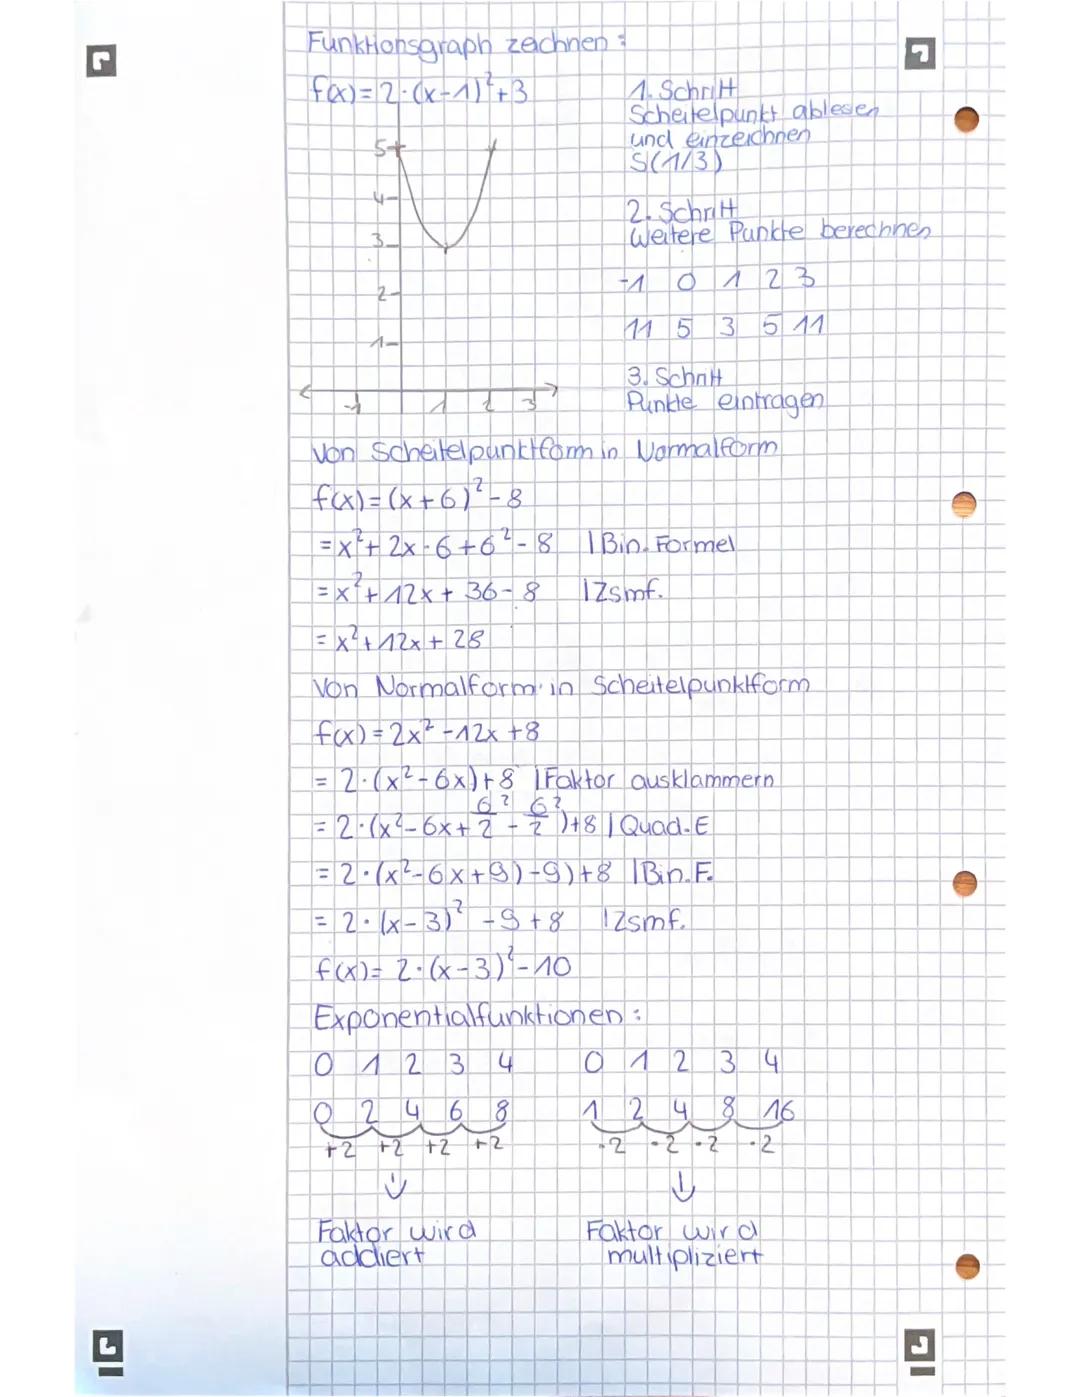 Funktionsgraph zeichnen:
f(x)=2·(x-1)²+3
1. Schritt
Scheitelpunkt ablesen
und einzeichnen
S(1/3)
5
4
3
2
1
-1 1 2 3
2. Schritt
Weitere Punkte berechnen
-1 0 1 2 3
11 5 3 5 11
3. Schritt
Punkte eintragen
Von Scheitelpunktform in Normalform
f(x)=(x+6)²-8
=x²+2x·6+6²-8 |Bin. Formel
=x²+12x+36-8 |Zsmf.
=x²+12x+28
Von Normalform in Scheitelpunktform
f(x)=2x²-12x+8
=2·(x²-6x)+8 |Faktor ausklammern
=2·(x²-6x+6/2²-6/2²)+8 |Quad.E
=2·(x²-6x+9)-9)+8 |Bin.F.
=2·(x-3)²-9+8 |Zsmf.
f(x)=2·(x-3)²-10
Exponentialfunktionen:
0 1 2 3 4 0 1 2 3 4
0 2 4 6 8 1 2 4 8 16
+2 +2 +2 +2 ·2 ·2 ·2 ·2
Faktor wird
addiert
Faktor wird
multipliziert